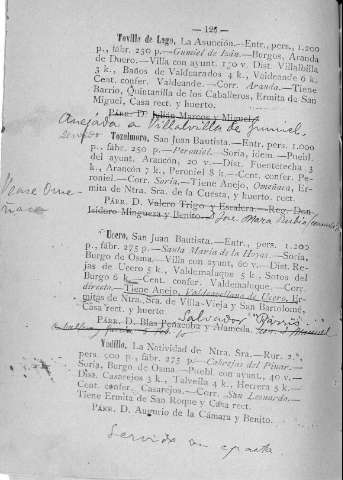 — 126 —
Tovilla de Lago, La Asunción.—Entr., pers., 1.200
p., fábr. 250 p.—Gumiel de Izán.—Burgos, Aranda
de Duero.—Villa con ayunt. 150 v. Dist. Villalbilla
3 k., Baños de Valdearados 4 k., Valdeande 6 k.
Cent. confer. Valdeande.—Corr. Aranda.—Tiene
Barrio, Quintanilla de los Caballeros, Ermita de San
Miguel, Casa rect. y huerto.
Párr. D. Julián Marcos y Miguel
Anejada a Villalvilla de Gumiel.
Tozalmoro, San Juan Bautista.—Entr., pers. 1.000
p., fábr. 250 p.—Peroniel.—Soria, idem.—Puebl.
del ayunt. Arancón, 20 v.—Dist. Fuentetecha 3
k., Arancón 7 k., Peroniel 8 k.—Cent. confer. Pe-
roniel.—Corr. Soria.—Tiene Anejo, Omeñaca, Er-
mita de Ntra. Sra. de la Cuesta, y huerto. rect.
Nace Ome
ñaca
Párr. D. Valero Trigo y Escalera.—Reg. Don
Isidoro Minguera y Benito. D. José Mara Rubio
Ucero, San Juan Bautista.—Entr., pers. 1.200
p., fábr. 275 p.—Santa María de la Hoyas.—Soria,
Burgo de Osma.—Villa con ayunt., 60 v.—Dist. Rej-
as de Ucero 5 k., Valdemaluque 5 k., Sotos del
Burgo 6 k.—Cent. confer. Valdemaluque.—Corr.
directa.—Tiene Anejo, Valdeavellano de Ucero, Er-
mitas de Ntra. Sra. de Villa-Vieja y San Bartolomé,
Casa rect. y huerto
Salvador
Párr. D. Blas Peñacoba y Alameda.
Vadillo, La Natividad de Ntra. Sra.—Rur. 2.ª,
pers. 900 p., fábr. 275 p.—Cabrejas del Pinar.—
Soria, Burgo de Osma.—Puebl con ayunt., 40 v.—
Dist. Casarejos 3 k., Talveila 4 k., Herrera 5 k.—
Cent. confer. Casarejos.—Corr. San Leonardo.—
Tiene Ermita de San Roque y Casa rect.
Párr. D. Augurio de la Cámara y Benito.
Servida